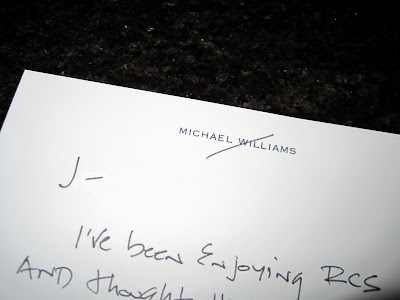 MICHAEL WILLIAMS
J-
I've been Enjoying RCS
AND thought